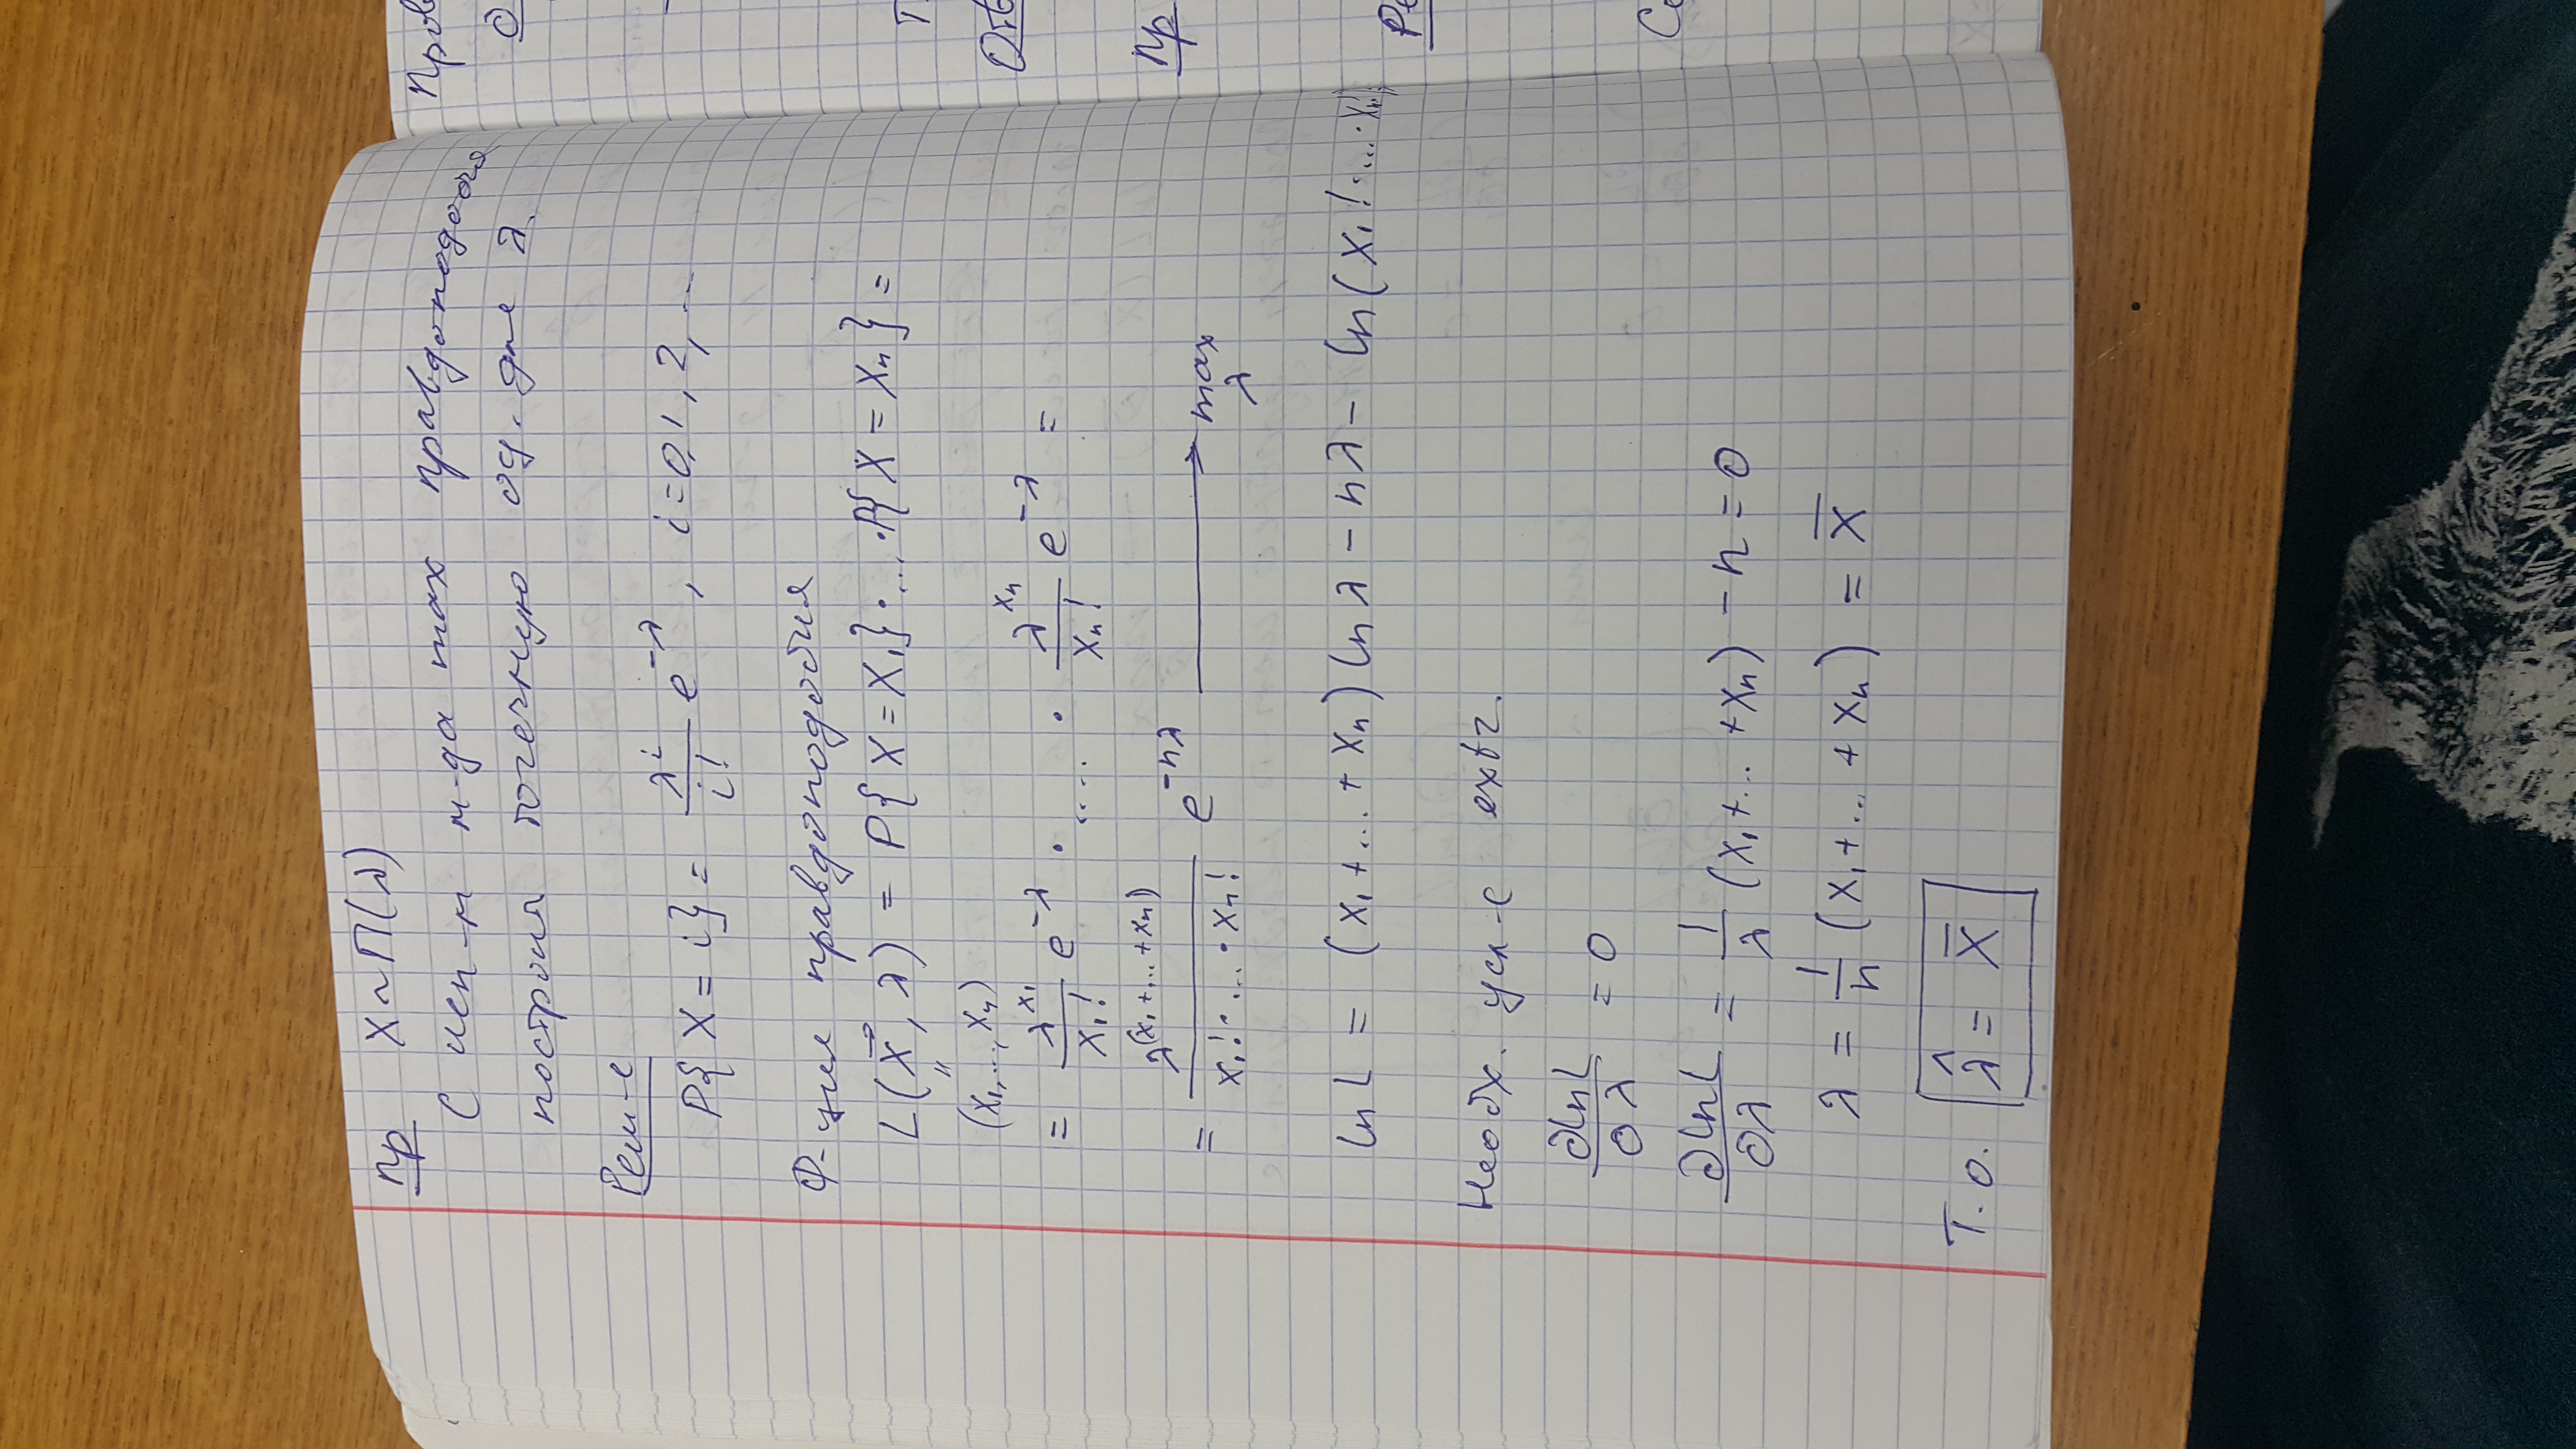 Пр X ~ П(λ)
С исп-м м-да max правдоподобия
построить точечную оц. для λ.
Реш-е
P{X = i} = λ^i / i! e^(-λ), i = 0,1, 2, ...
Ф-ция правдоподобия
L(X⃗, λ) = P{X = X₁}·...·P{X = Xₙ} =
"
(X₁,..., Xₙ)
= λ^(X₁) / X₁! e^(-λ) · .... · λ^(Xₙ) / Xₙ! e^(-λ) =
= λ^(X₁+...+Xₙ) / X₁!·...·Xₙ! e^(-nλ) → max λ
ln L = (X₁+...+Xₙ) ln λ - nλ - ln(X₁!·...·Xₙ!)
Необх. усл-е extr.
∂lnL / ∂λ = 0
∂lnL / ∂λ = 1/λ (X₁+... +Xₙ) - n = 0
λ = 1/n (X₁+... + Xₙ) = X̅
Т.о. λ̂ = X̅
Пров
О
Т.
Отв
Пр
Ре
Се